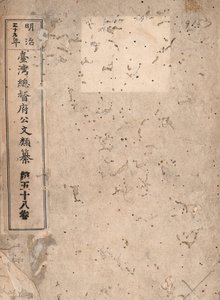 明治
三十五年
臺灣總督府公文類纂 第五十八卷